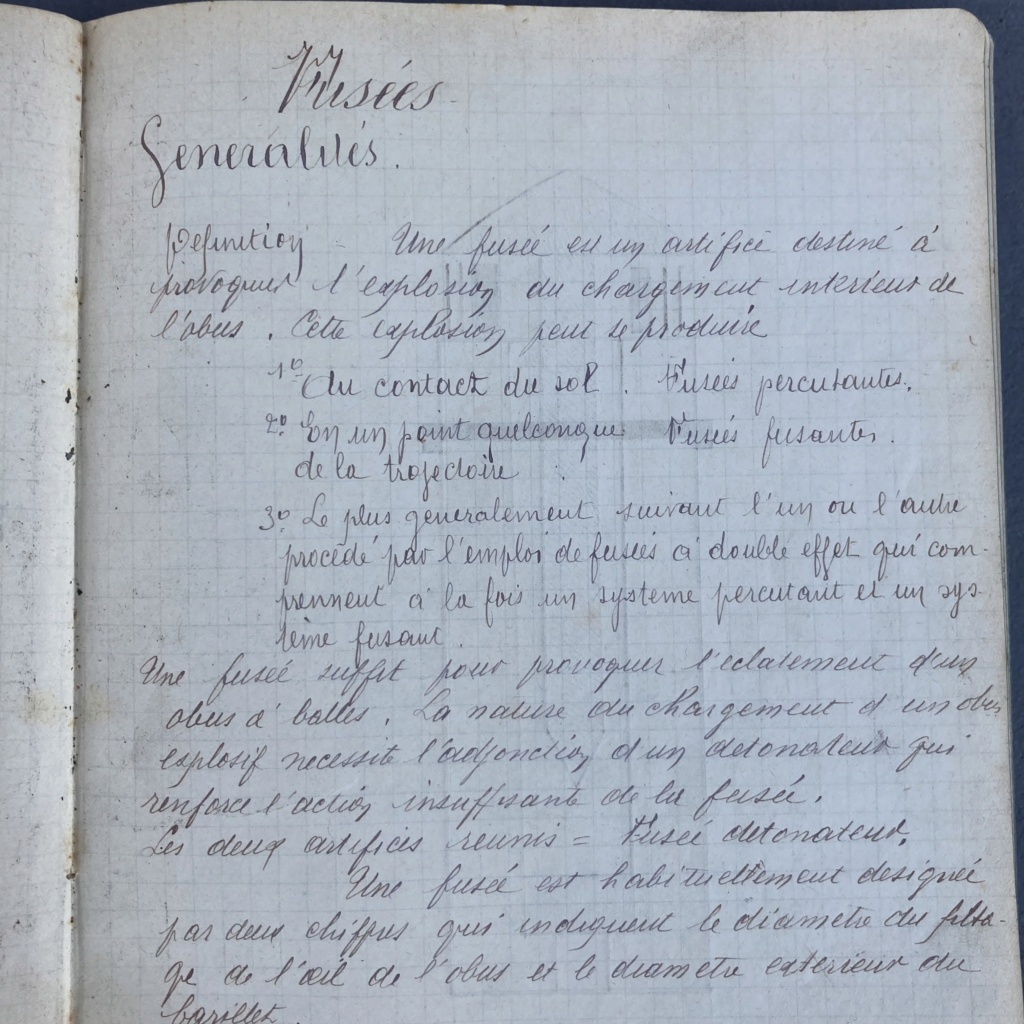 Fusées
Generalités.
Definition = Une fusée est un artifice destiné à
provoquer l'explosion du chargement interieur de
l'obus. Cette explosion peut se produire
1º Au contact du sol. Fusées percutantes.
2º En un point quelconque Fusées fusantes.
de la trajectoire
3º Le plus generalement suivant l'un ou l'autre
procédé par l'emploi de fusées à double effet qui com-
prennent à la fois un systeme percutant et un sys-
tème fusant.
Une fusée suffit pour provoquer l'eclatement d'un
obus à balles. La nature du chargement d'un obus
explosif necessite l'adjonction d'un detonateur qui
renforce l'action insuffisante de la fusée.
Les deux artifices reunis = Fusée detonateur.
Une fusée est habituellement designée
par deux chiffres qui indiquent le diametre du filta-
ge de l'œil de l'obus et le diametre exterieur du
barillet.